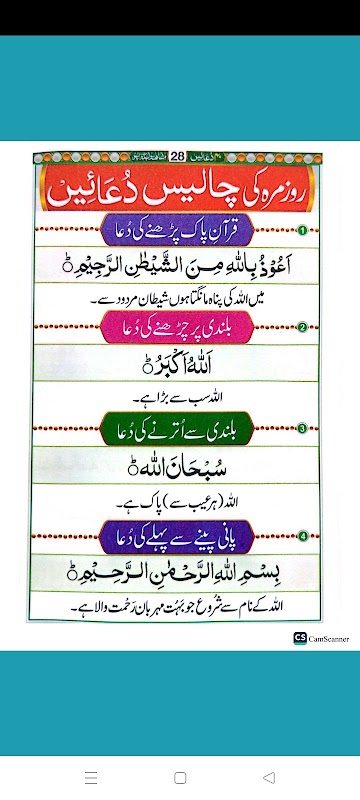 ۴۰ دُعائیں 28
روزمرہ کی چالیس دُعَائِیں
1 قرآنِ پاک پڑھنے کی دُعا
اَعُوْذُ بِاللّٰهِ مِنَ الشَّيْطٰنِ الرَّجِيْمِ ؕ
میں اللہ کی پناہ مانگتا ہوں شیطان مردود سے۔
2 بلندی پر چڑھنے کی دُعا
اَللّٰهُ اَكْبَرُ ؕ
اللہ سب سے بڑا ہے۔
3 بلندی سے اُترنے کی دُعا
سُبْحَانَ اللّٰه ؕ
اللہ (ہر عیب سے) پاک ہے۔
4 پانی پینے سے پہلے کی دُعا
بِسْمِ اللّٰهِ الرَّحْمٰنِ الرَّحِيْمِ ؕ
اللہ کے نام سے شُروع جو بہُت مہربان رَحْمت والا ہے۔
CS CamScanner